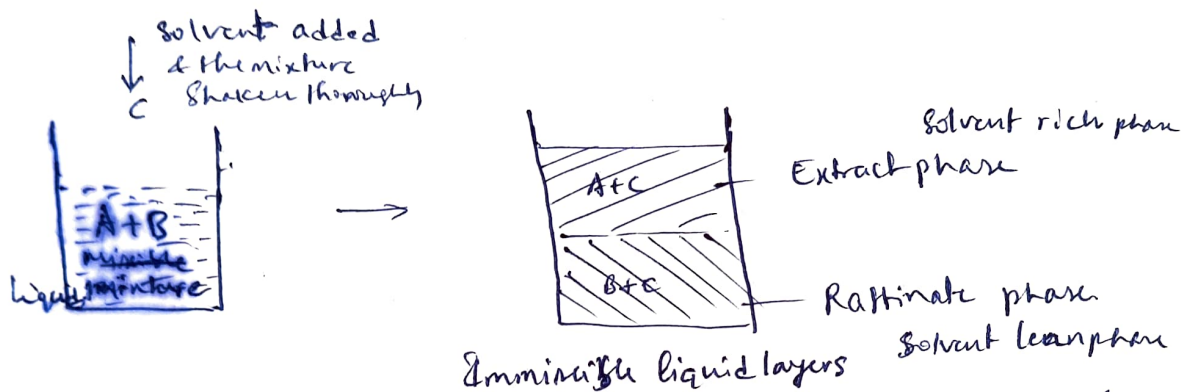 Solvent added
& the mixture
C Shaken thoroughly
A+B
miscible
liquid mixture
A+C
B+C
Solvent rich phase
Extract phase
Raffinate phase
Solvent lean phase
Immiscible liquid layers